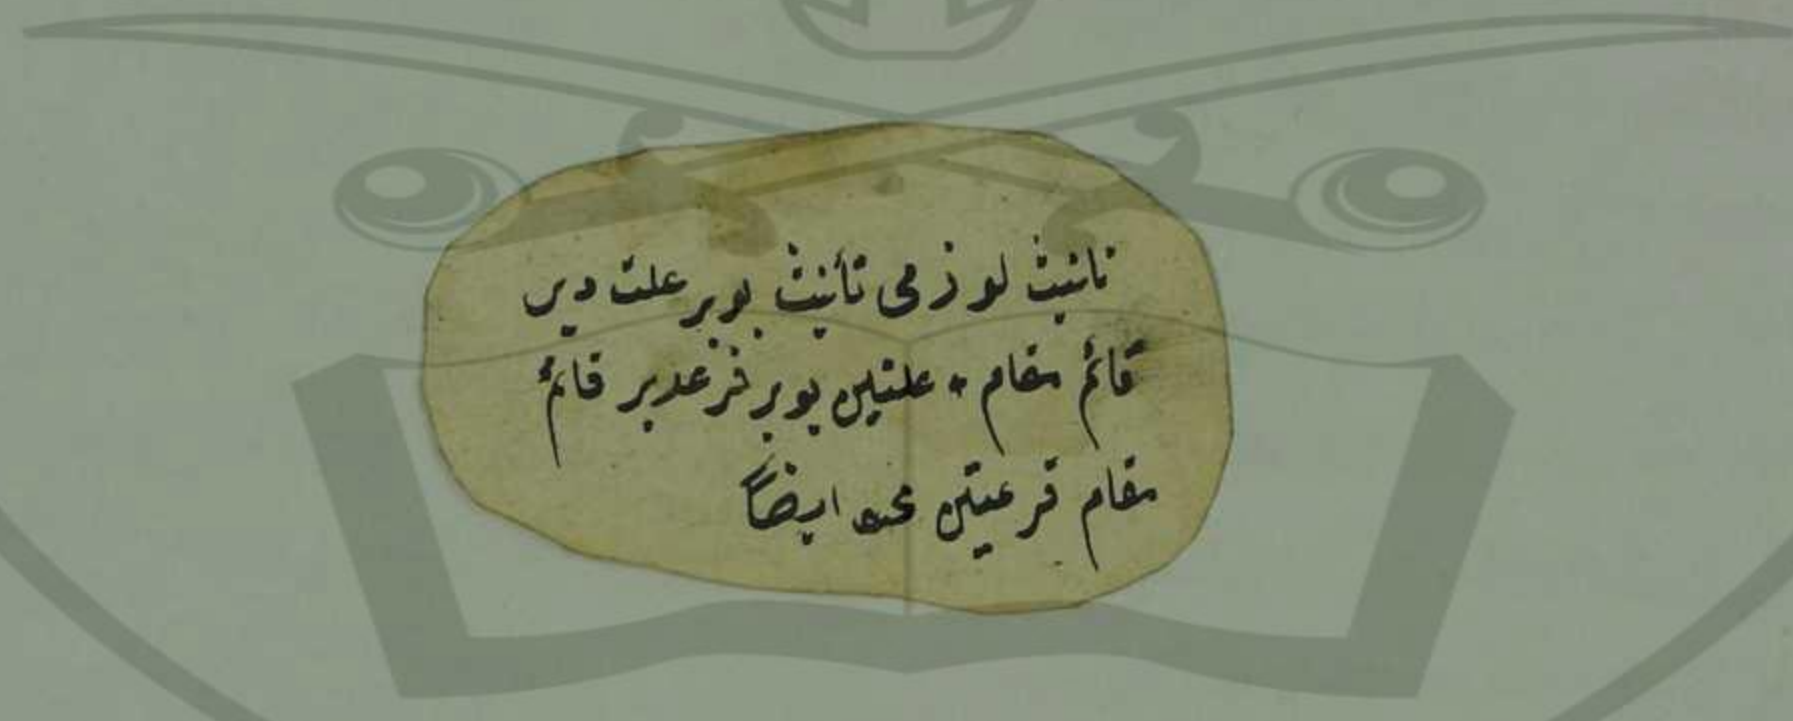 تانيث لوزمى تأنيث بو بر علت دير
قائم مقام • علتين بو بر فرعدير قائم
مقام فرعيتين ايضاً